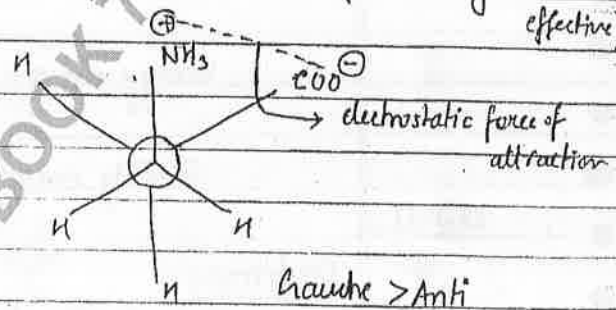 effective
⊕
NH₃
H
COO⊖
electrostatic force of
attraction
H
H
H
Gauche > Anti
BOOK